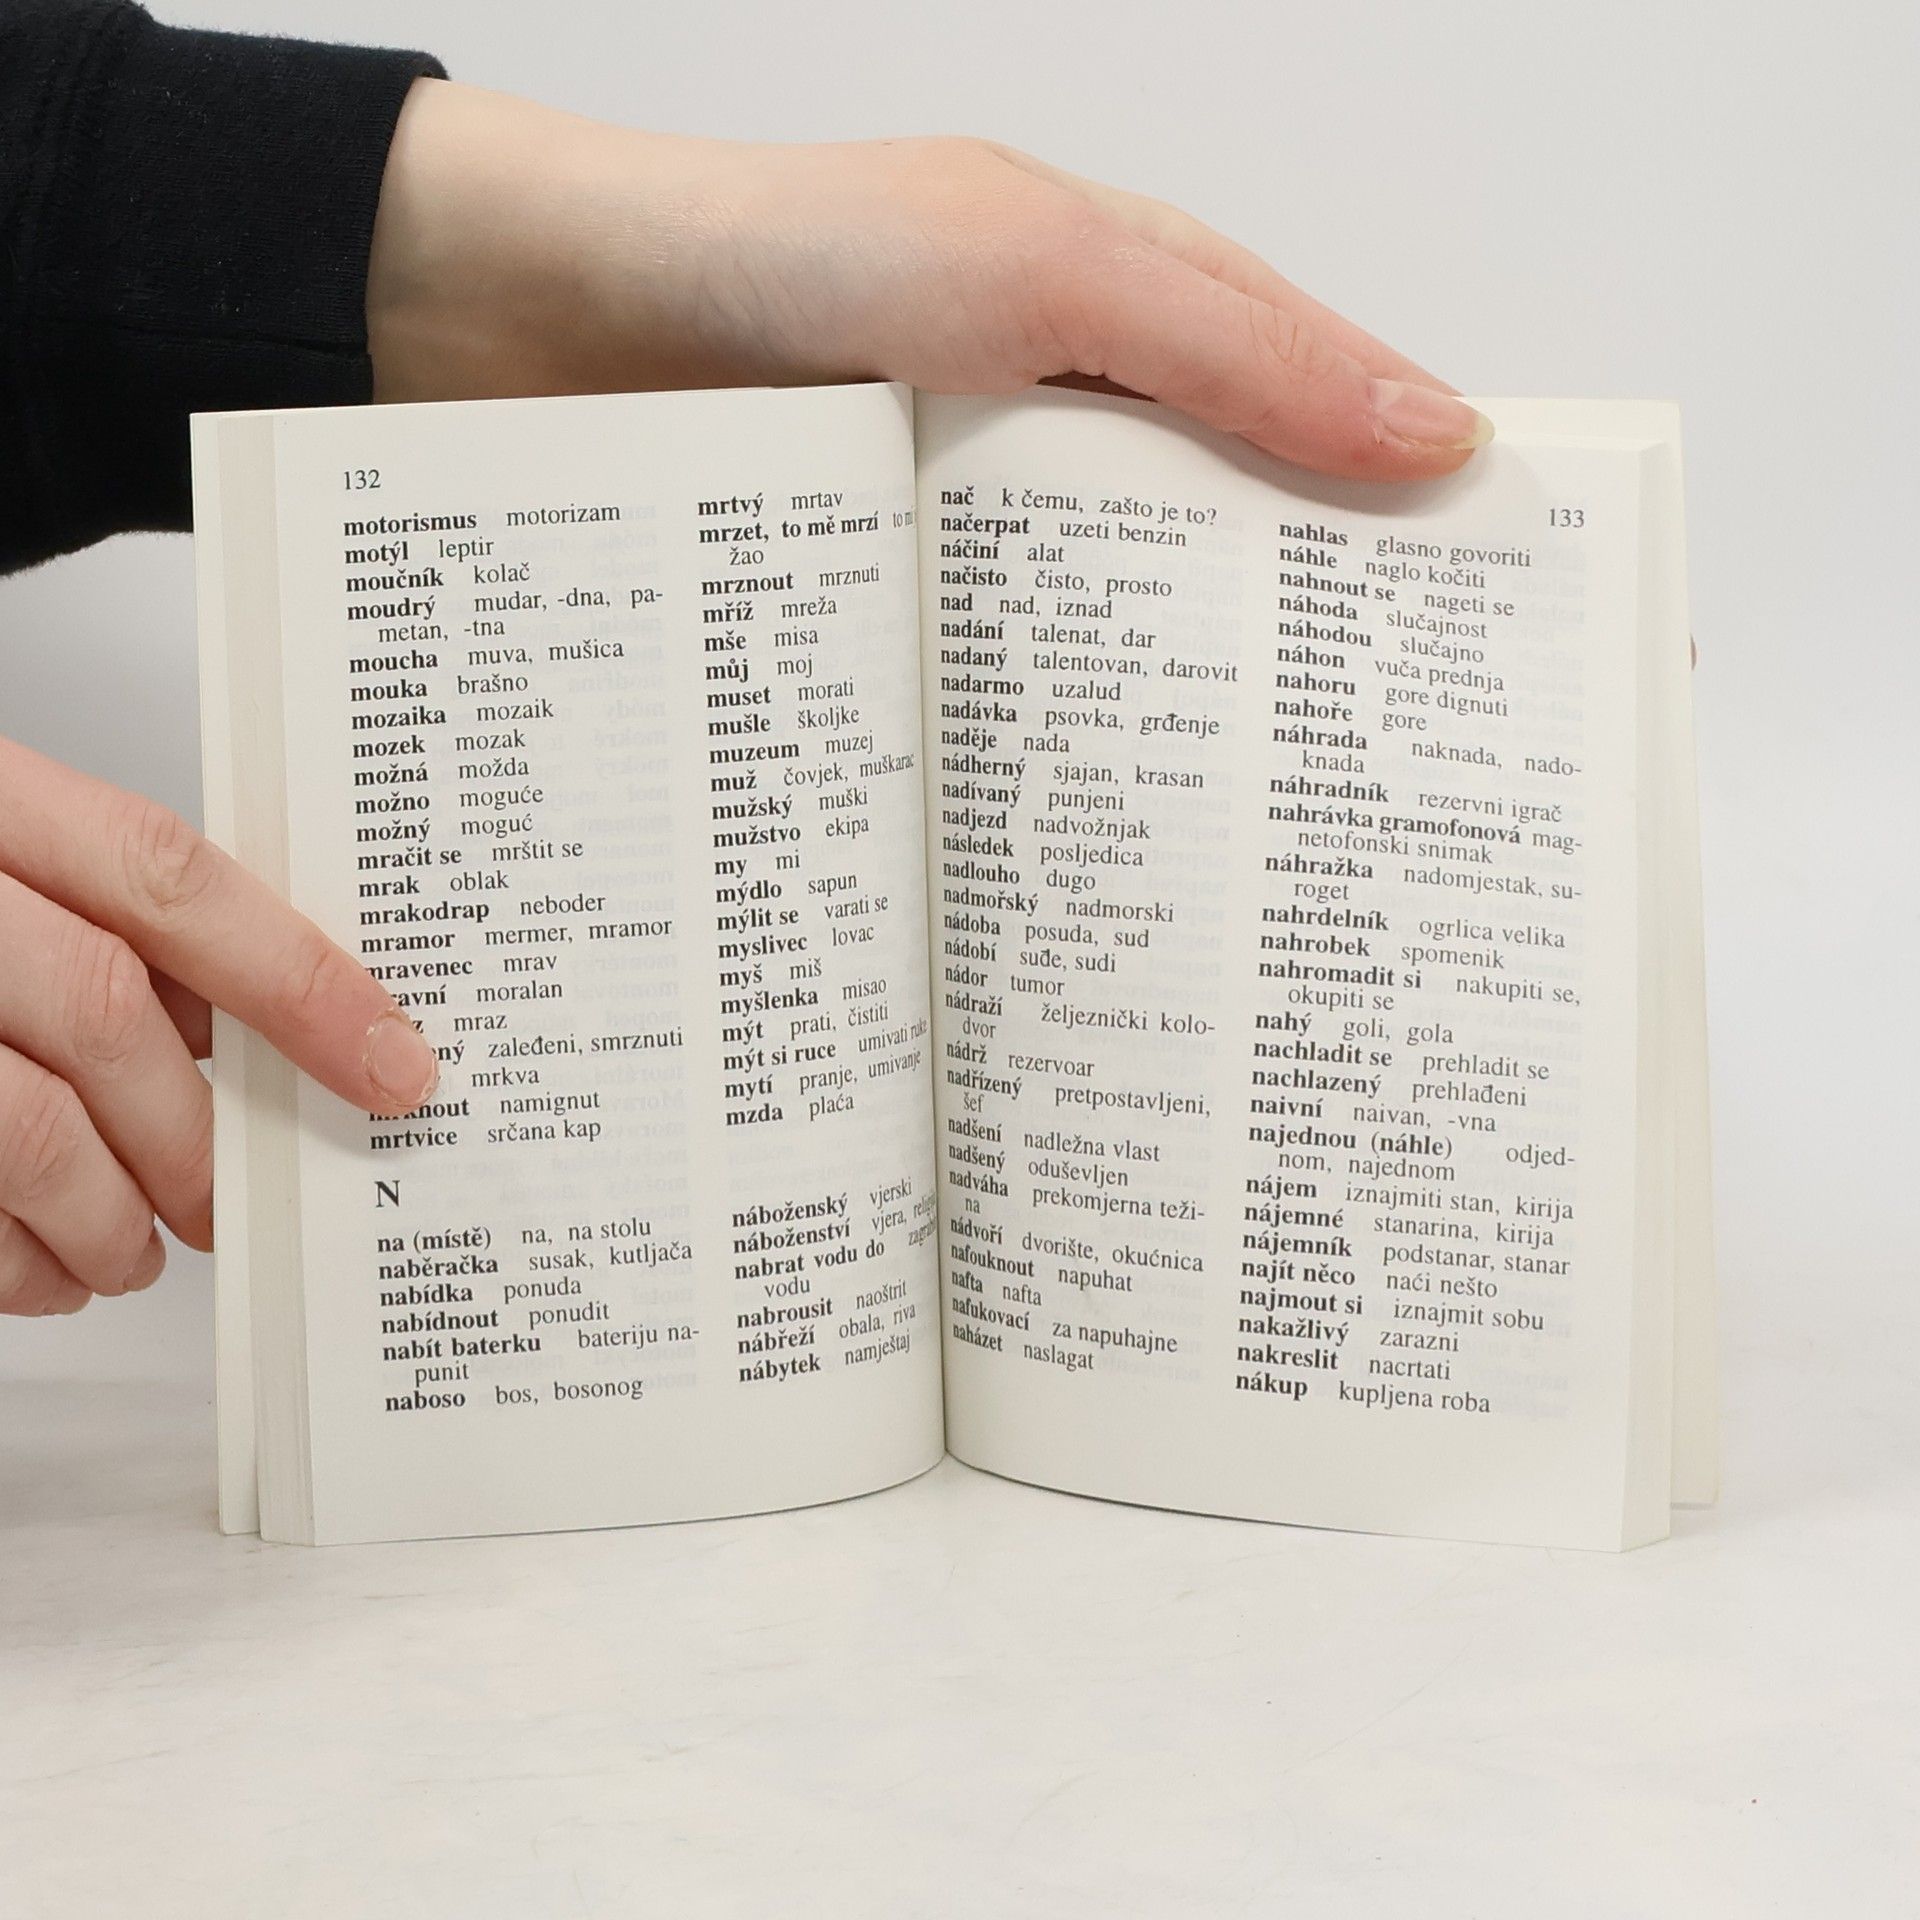 132
motorismus motorizam
motýl leptir
moučník kolač
moudrý mudar, -dna, pa-
metan, -tna
moucha muva, mušica
mouka brašno
mozaika mozaik
mozek mozak
možná možda
možno moguće
možný moguć
mračit se mrštit se
mrak oblak
mrakodrap neboder
mramor mermer, mramor
mravenec mrav
moralan
mraz
zaleđeni, smrznuti
mrkva
namignut
mrtvice srčana kap
N
na (místě) na, na stolu
naběračka susak, kutljača
nabídka ponuda
nabídnout ponudit
nabít baterku bateriju na-
punit
naboso bos, bosonog
mrtvý mrtav
mrzet, to mě mrzí to mi
žao
mrznout mrznuti
mříž mreža
mše misa
můj moj
muset morati
mušle školjke
muzeum muzej
muž čovjek, muškarac
mužský muški
mužstvo ekipa
my mi
mýdlo sapun
mýlit se varati se
myslivec lovac
myš miš
myšlenka misao
mýt prati, čistiti
mýt si ruce umivati ruke
mytí pranje, umivanje
mzda plaća
náboženský vjerski
náboženství vjera,
nabrat vodu do
vodu
nabrousit naoštrit
nábřeží obala, riva
nábytek namještaj
nač k čemu, zašto je to?
načerpat uzeti benzin
náčiní alat
načisto čisto, prosto
nad nad, iznad
nadání talenat, dar
nadaný talentovan, darovit
nadarmo uzalud
nadávka psovka, grđenje
naděje nada
nádherný sjajan, krasan
nadívaný punjeni
nadjezd nadvožnjak
následek posljedica
nadlouho dugo
nadmořský nadmorski
nádoba posuda, sud
nádobí suđe, sudi
nádor tumor
nádraží željeznički kolo-
dvor
nádrž rezervoar
nadřízený pretpostavljeni,
šef
nadšení nadležna vlast
nadšený oduševljen
nadváha prekomjerna teži-
na
nádvoří dvorište, okućnica
nafouknout napuhat
nafta nafta
nafukovací za napuhajne
naházet naslagat
133
nahlas glasno govoriti
náhle naglo kočiti
nahnout se nageti se
náhoda slučajnost
náhodou slučajno
náhon vuča prednja
nahoru gore dignuti
nahoře gore
náhrada naknada, nado-
knada
náhradník rezervni igrač
nahrávka gramofonová mag-
netofonski snimak
náhražka nadomjestak, su-
roget
nahrdelník ogrlica velika
nahrobek spomenik
nahromadit si nakupiti se,
okupiti se
nahý goli, gola
nachladit se prehladit se
nachlazený prehlađeni
naivní naivan, -vna
najednou (náhle) odjed-
nom, najednom
nájem iznajmiti stan, kirija
nájemné stanarina, kirija
nájemník podstanar, stanar
najít něco naći nešto
najmout si iznajmit sobu
nakažlivý zarazni
nakreslit nacrtati
nákup kupljena roba